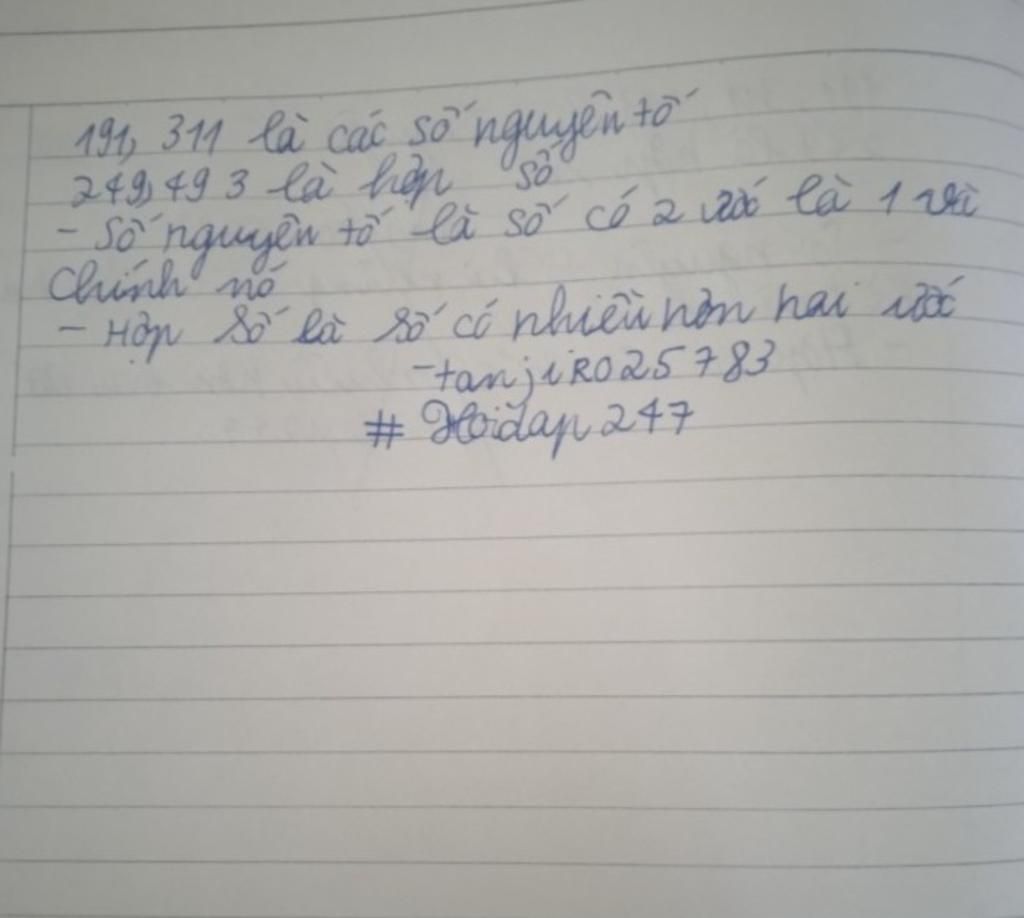 191, 311 là các số nguyên tố
249, 493 là hợp số
- Số nguyên tố là số có 2 ước là 1 và
Chính nó
- Hợp số là số có nhiều hơn hai ước
- tanjiRO25783
# Hoidap247